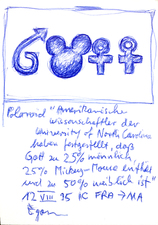 Polaroid "Amerikanische
Wissenschaftler der
University of North Carolina
haben festgestellt, daß
Gott zu 25% männlich,
25% Mickey-Mouse enthält
und zu 50% weiblich ist"
12 VIII 95 10 FRA → MA